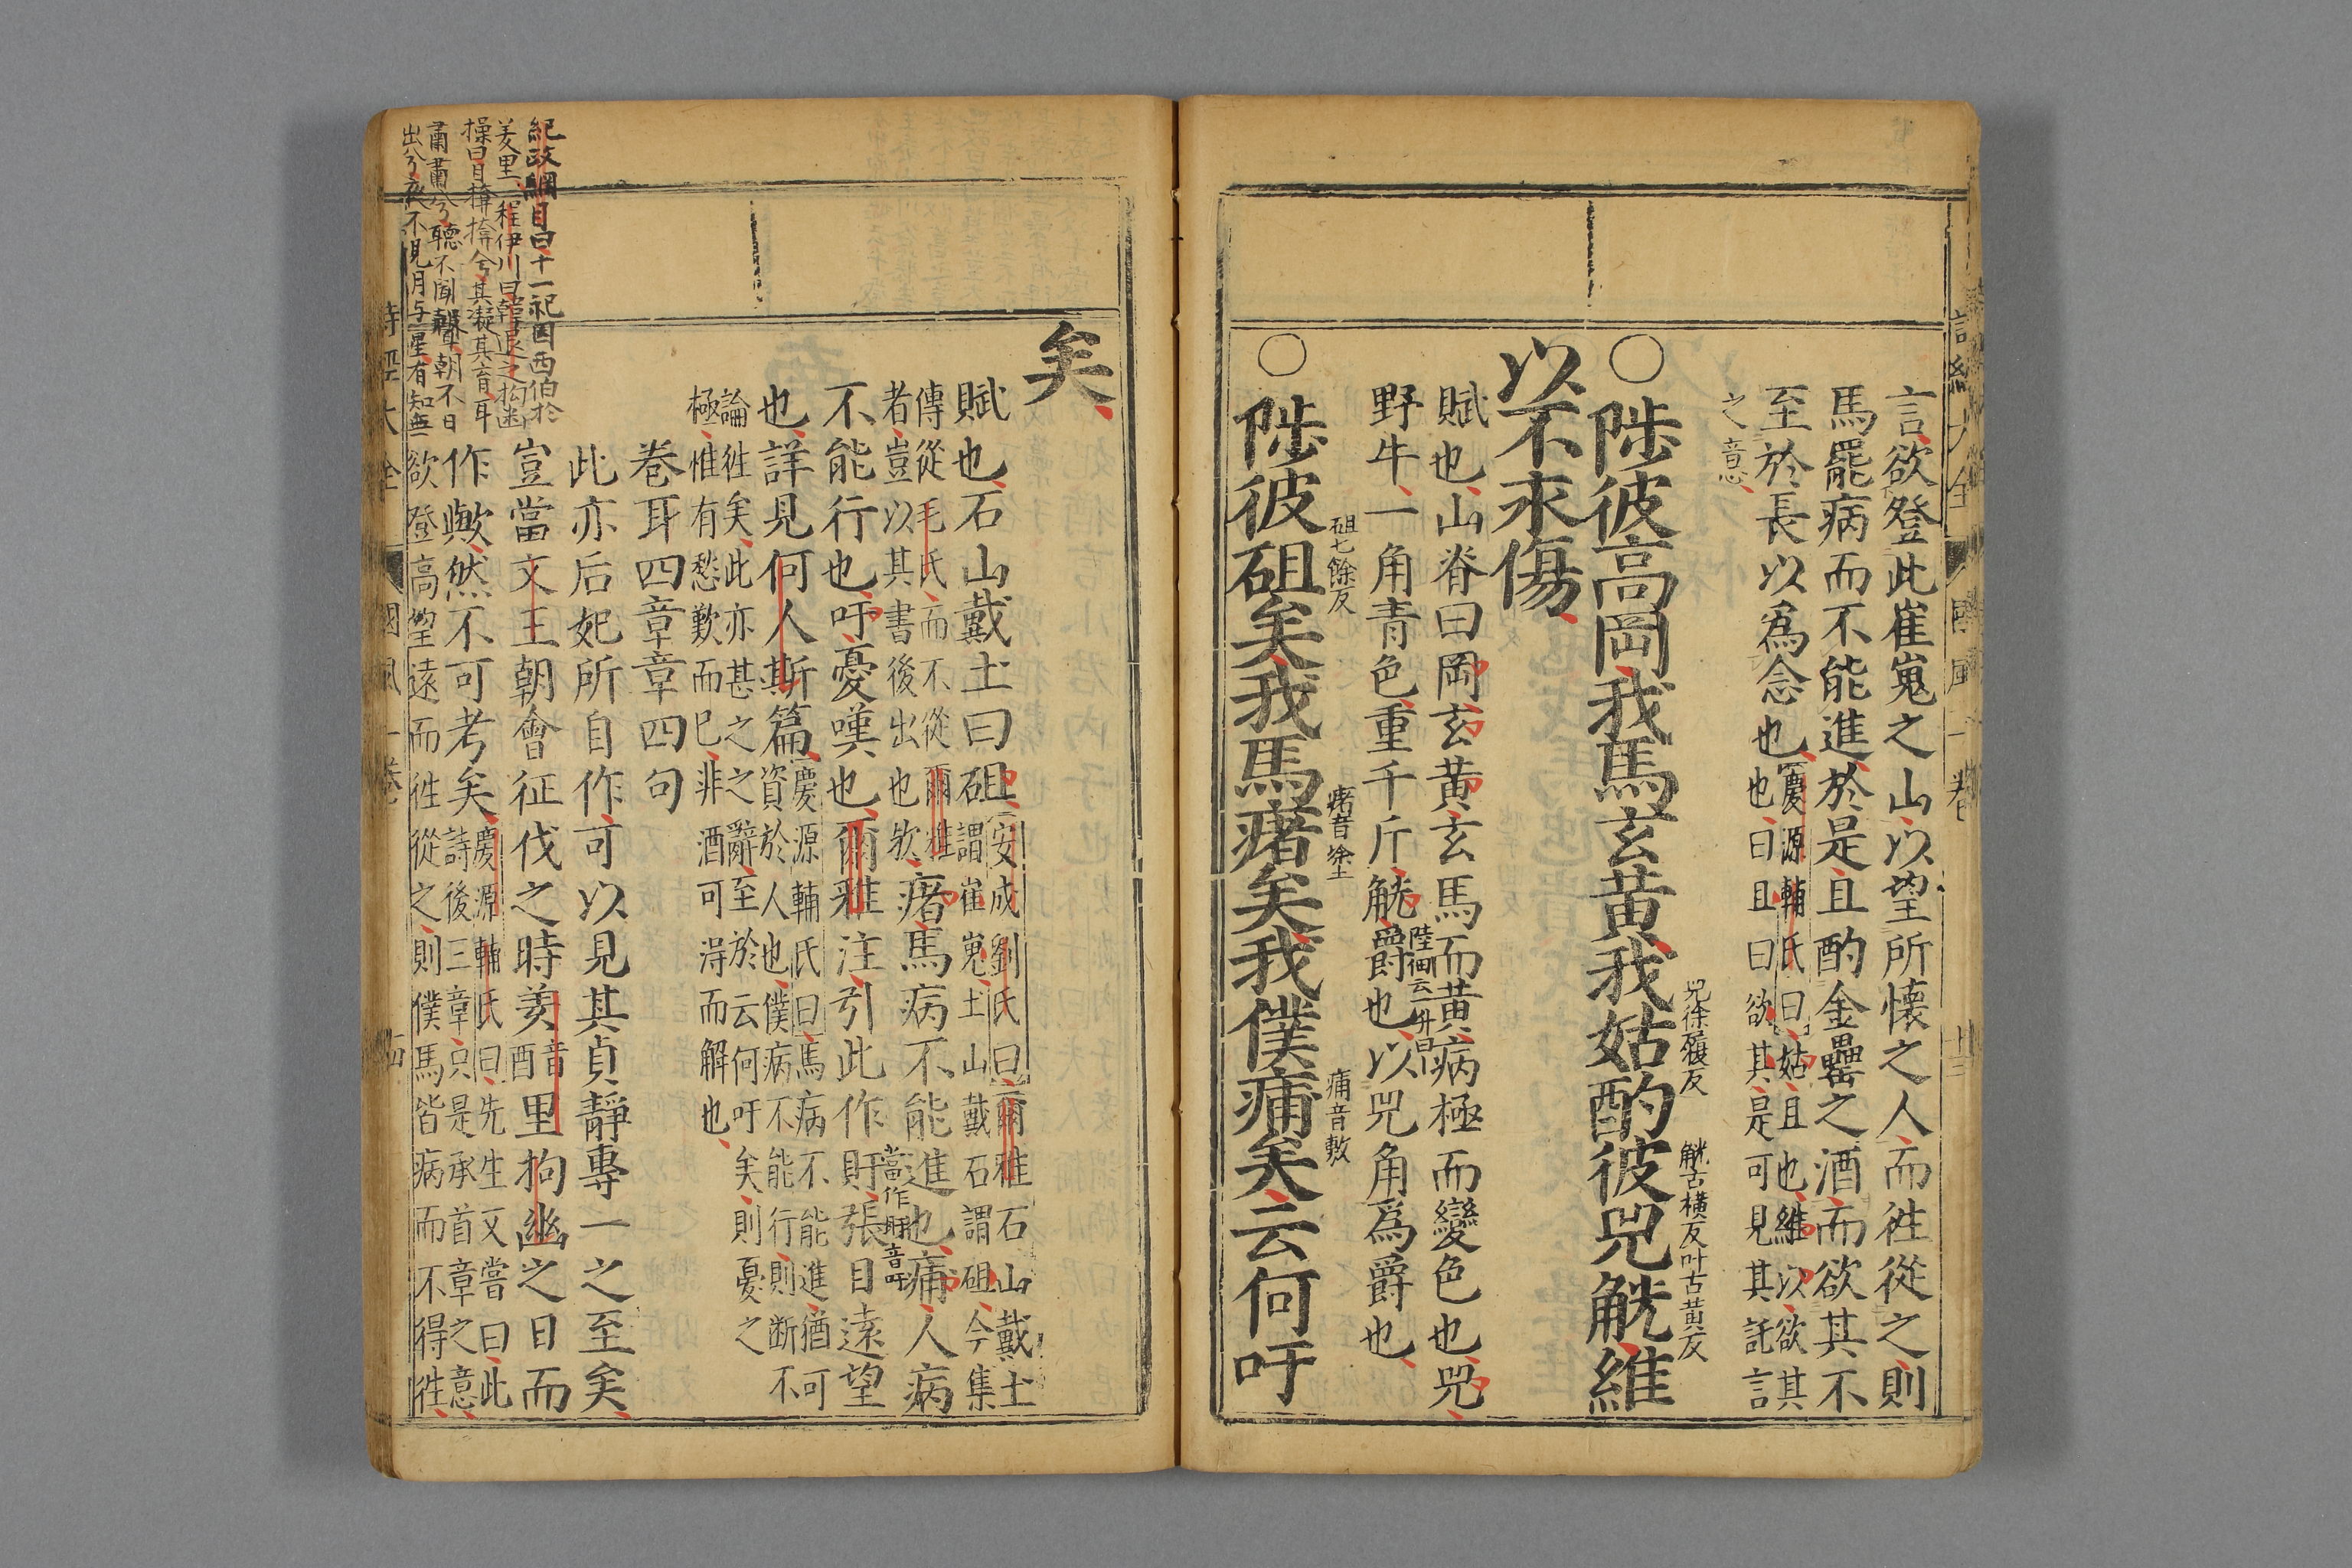 言欲登此崔嵬之山以望所懷之人而徃從之則
馬罷病而不能進於是且酌金罍之酒而欲其不
至於長以爲念也
慶源輔氏曰姑且也維以欲其
也曰且曰欲其是可見其託言
之意
○陟彼高岡我馬玄黃我姑酌彼兕觥維
兕徐履反
觥古橫反叶古黃反
以不永傷
賦也山脊曰岡玄黃玄馬而黃病極而變色也兕
野牛一角青色重千斤觥爵也以兕角爲爵也
○陟彼砠矣我馬瘏矣我僕痡矣云何吁
砠七餘反
瘏音塗
痡音敷
矣
賦也石山戴土曰砠
安成劉氏曰爾雅石山戴土
謂崔嵬土山戴石謂砠今集
傳從毛氏而不從爾雅
者豈以其書後出也歟
瘏馬病不能進也痡人病
不能行也吁憂嘆也爾雅注引此作盱張目遠望
當作盱音吁
也詳見何人斯篇
慶源輔氏曰馬病不能進猶可
資於人也僕病不能行則断不
論徃矣此亦甚之之辭至於云何吁矣則憂之
極惟有愁歎而已非酒可得而解也
卷耳四章章四句
此亦后妃所自作可以見其貞靜專一之至矣
豈當文王朝會征伐之時羑里拘幽之日而
作歟然不可考矣
慶源輔氏曰先生又嘗曰此
詩後三章只是承首章之意
欲登高望遠而徃從之則僕馬皆病而不得徃
紀政綱目曰十一祀囚西伯於
羑里程伊川曰韓退之拘幽
操曰目揜揜兮其凝其盲耳
肅肅兮聽不聞聲朝不日
出兮夜不見月与星有知無